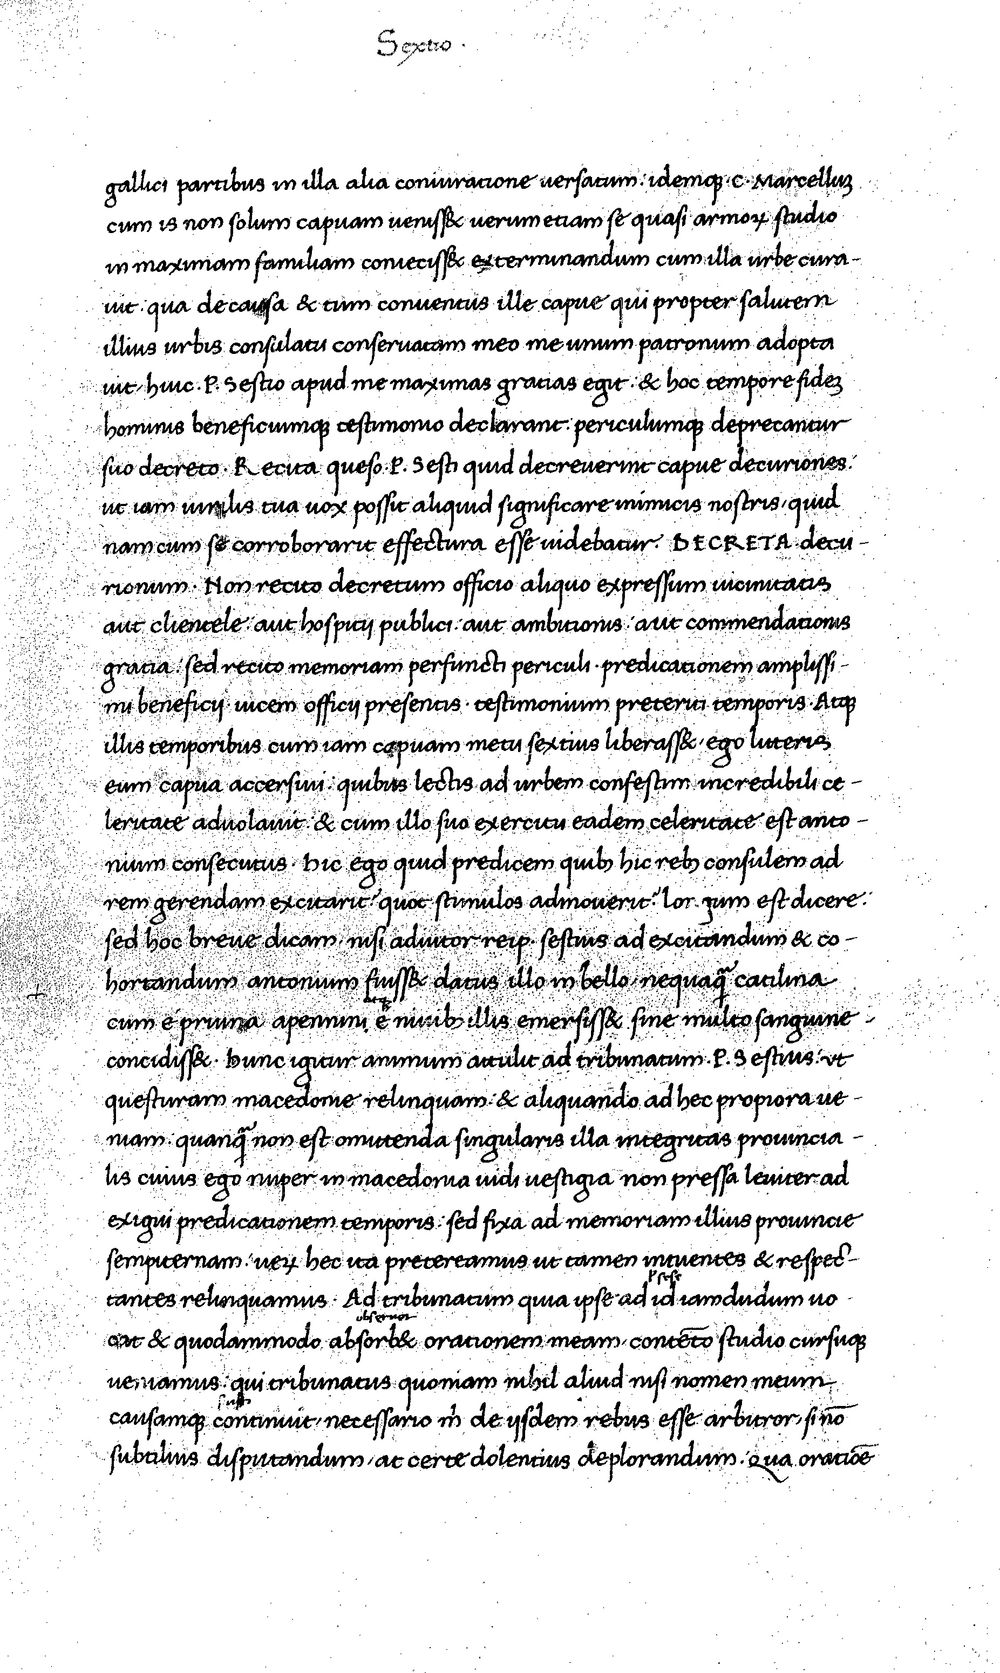 Sextio ·
gallici partibus in illa alia coniuratione uersatum: idemq; C. Marcelluȝ
cum is non solum capuam uenisset uerum etiam se quasi armoꝝ studio
in maximam familiam coniecisset exterminandum cum illa urbe cura-
uit· qua de causa & tum conuentus ille capue qui propter salutem
illius urbis consulatu conseruatam meo me unum patronum adopta
uit· huic· P. Sestio apud me maximas gratias egit· & hoc tempore fideȝ
hominis beneficiumq; testimonio declarant: periculumq; deprecantur
suo decreto· Recita queso· P. Sesti quid decreuerint capue decuriones:
ut iam uirilis tua uox possit aliquid significare inimicis nostris, quid
nam cum se corroborarit effectura esse uidebatur· DECRETA decu-
rionum· Non recito decretum officio aliquo expressum uicinitatis
aut clientele: aut hospitij publici: aut ambitionis: aut commendationis
gratia: sed recito memoriam perfuncti periculi· predicationem amplissi-
mi beneficij· uicem officij presentis· testimonium preteriti temporis· Atq;
illis temporibus cum iam capuam metu sextius liberasset, ego litteris
eum capua accersiui: quibus lectis ad urbem confestim incredibili ce-
leritate aduolauit· & cum illo suo exercitu eadem celeritate est anto-
nium consecutus· Hic ego quid predicem quibȝ hic rebȝ consulem ad
rem gerendam excitarit? quot stimulos admouerit? lor. ȝum est dicere:
sed hoc breue dicam, nisi adiutor reip. sestius ad excitandum & co-
hortandum antonium fuisset datus illo in bello, nequaq̃ catilina
cum e pruina apennini ē niuibȝ illis emersisset sine multo sanguine
concidisset· Hunc igitur animum attulit ad tribunatum· P. Sestius: ut
questuram macedonie relinquam· & aliquando ad hec propiora ue-
niam· quanq̃ non est omittenda singularis illa integritas prouincia-
lis cuius ego nuper in macedonia uidi uestigia non pressa leuiter ad
exigui predicationem temporis: sed fixa ad memoriam illius prouincie
sempiternam: ueꝝ hec ita pretereamus ut tamen intuentes & respec-
tantes relinquamus· Ad tribunatum quia ipse ad id iamdudum uo
cat & quodammodo absorbet orationem meam, contēto studio cursuq;
ueniamus: qui tribunatus quoniam nihil aliud nisi nomen meum
causamq; continuit, necessario m̄ de ijsdem rebus esse arbitror, si nō
subtilius disputandum, at certe dolentius deplorandum· Qua oratiōe